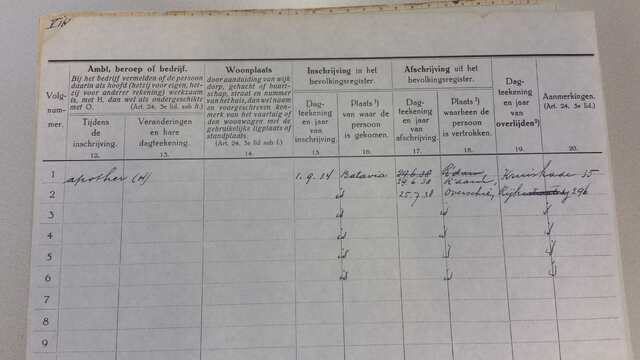 Volg-
num-
mer.
Ambt, beroep of bedrijf.
Bij het bedrijf vermelden of de persoon
daarin als hoofd (hetzij voor eigen, het-
zij voor anderer rekening) werkzaam
is, met H. dan wel als ondergeschikte
met O. (Art. 24, 3e lid sub f.)
Tijdens
de
inschrijving.
12.
Veranderingen
en hare
dagteekening.
13.
Woonplaats
door aanduiding van wijk
dorp, gehucht of buurt-
schap, straat en nummer
van het huis, dan wel naam
en voorgeschreven ken-
merk van het vaartuig of
den woonwagen met de
gebruikelijke ligplaats of
standplaats
(Art. 24, 3e lid sub h.)
14.
Inschrijving in het
bevolkingsregister.
Dag-
teekening
en jaar
van
inschrijving.
15
Plaats 1)
van waar de
persoon
is gekomen.
16.
Afschrijving uit het
bevolkingsregister.
Dag-
teekening
en jaar van
afschrijving.
17.
Plaats 1)
waarheen de
persoon is
vertrokken.
18.
Dag-
teekening
en jaar van
overlijden2)
19.
Aanmerkingen.
(Art. 24, 3e lid.)
20.
1 apother (H) 1.9.34 Batavia 29.6.38 R'dam
29.6.38 R'dam, 35
2 id 25.7.38 Overschie, 296
3 id
4 id
5 id
6 id
7
8
9